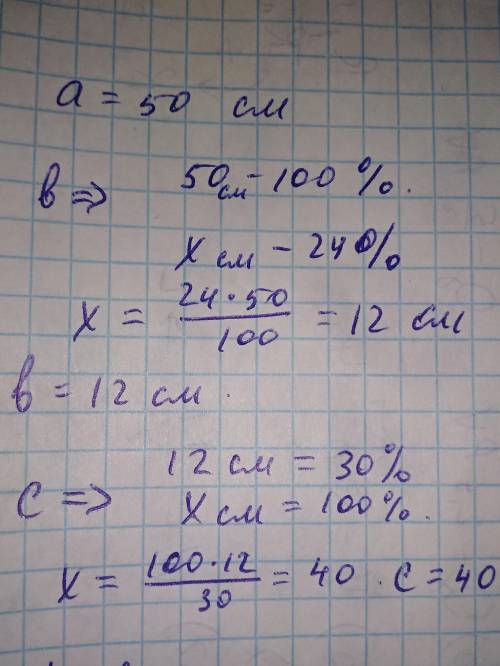 a = 50 см
в => 50см - 100 %.
х см - 24%
х = 24·50 / 100 = 12 см
в = 12 см.
12 см = 30%
с => х см = 100%.
х = 100·12 / 30 = 40. с = 40